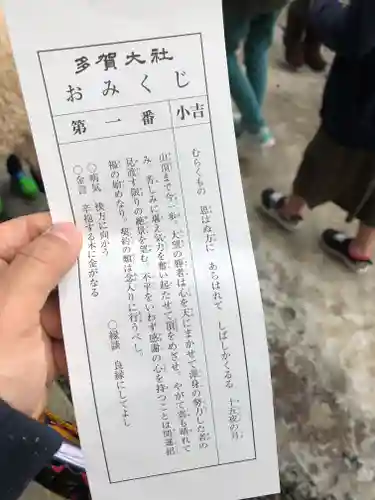 多賀大社
おみくじ
第一番
小吉
むらくもの　思はぬ方に　あらはれて　しばしかくるる　十五夜の月
山頂まで今一歩。大望の勝者は心を天にまかせて渾身の努力した者の
み　苦しみに堪え気力を奮い起たせて頂をめざせ。やがて雲も晴れて
見渡す限りの絶景を望む。不平をいわず感謝の心を持つことは開運招
福の始めなり。契約の類は念入りに行うべし。
○病気　快方に向かう
○縁談　良縁にしてよし
○金談　辛抱する木に金がなる